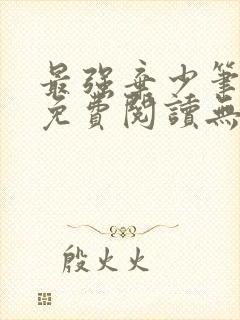 最強棄少筆
免費閱讀無
殷火火